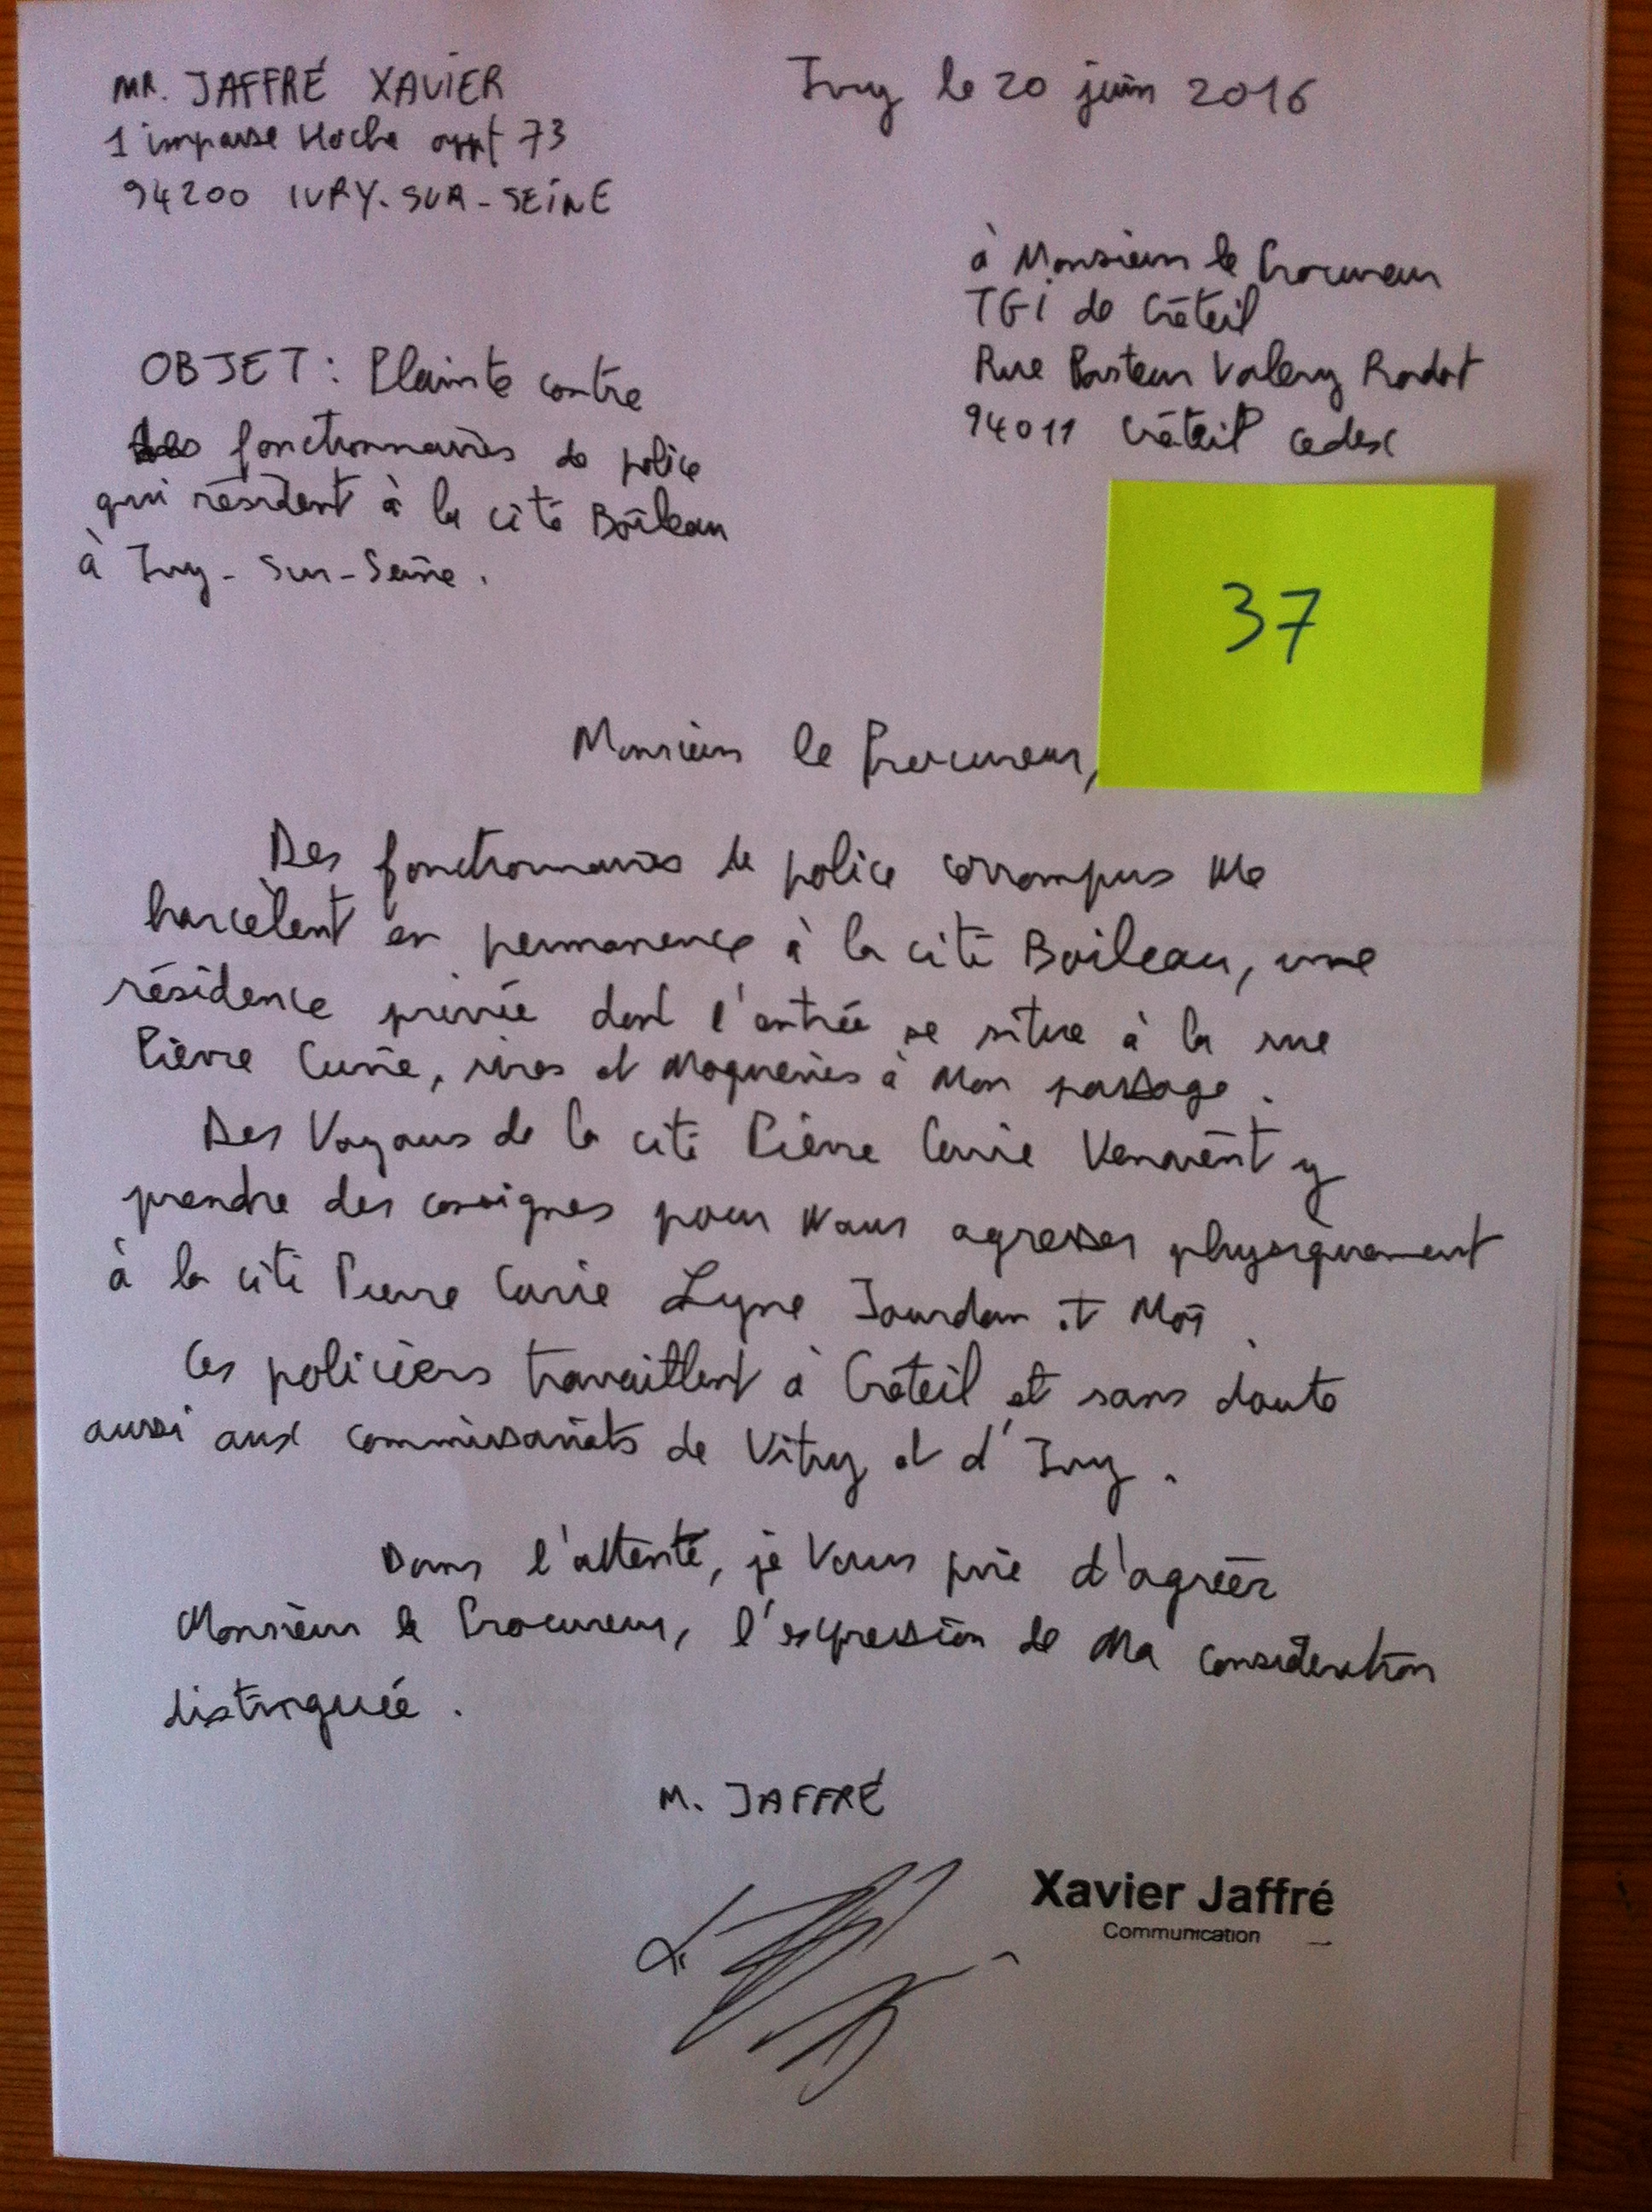 MR. JAFFRÉ XAVIER
1 impasse Hoche appt 73
94200 IVRY-SUR-SEINE
Ivry le 20 juin 2016
à Monsieur le Procureur
TGI de Créteil
Rue Pasteur Valery Radot
94011 Créteil cedex
OBJET : Plainte contre
des fonctionnaires de police
qui résident à la cité Boileau
à Ivry-Sur-Seine.
37
Monsieur le Procureur,
Des fonctionnaires de police corrompus me
harcèlent en permanence à la cité Boileau, une
résidence privée dont l'entrée se situe à la rue
Pierre Curie, rires et moqueries à mon passage.
Des Voyous de la cité Pierre Curie Venaient y
prendre des consignes pour nous agresser physiquement
à la cité Pierre Curie Lyne Jourdan et Moi.
Ces policiers travaillent à Créteil et sans doute
aussi aux commissariats de Vitry et d'Ivry.
Dans l'attente, je Vous prie d'agréer
Monsieur le Procureur, l'expression de Ma considération
distinguée.
M. JAFFRÉ
Xavier Jaffré
Communication